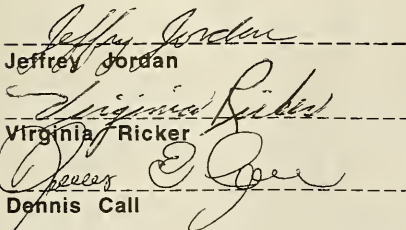 Jeffry Jordan
Jeffrey Jordan
Virginia Ricker
Virginia Ricker
Dennis E Call
Dennis Call